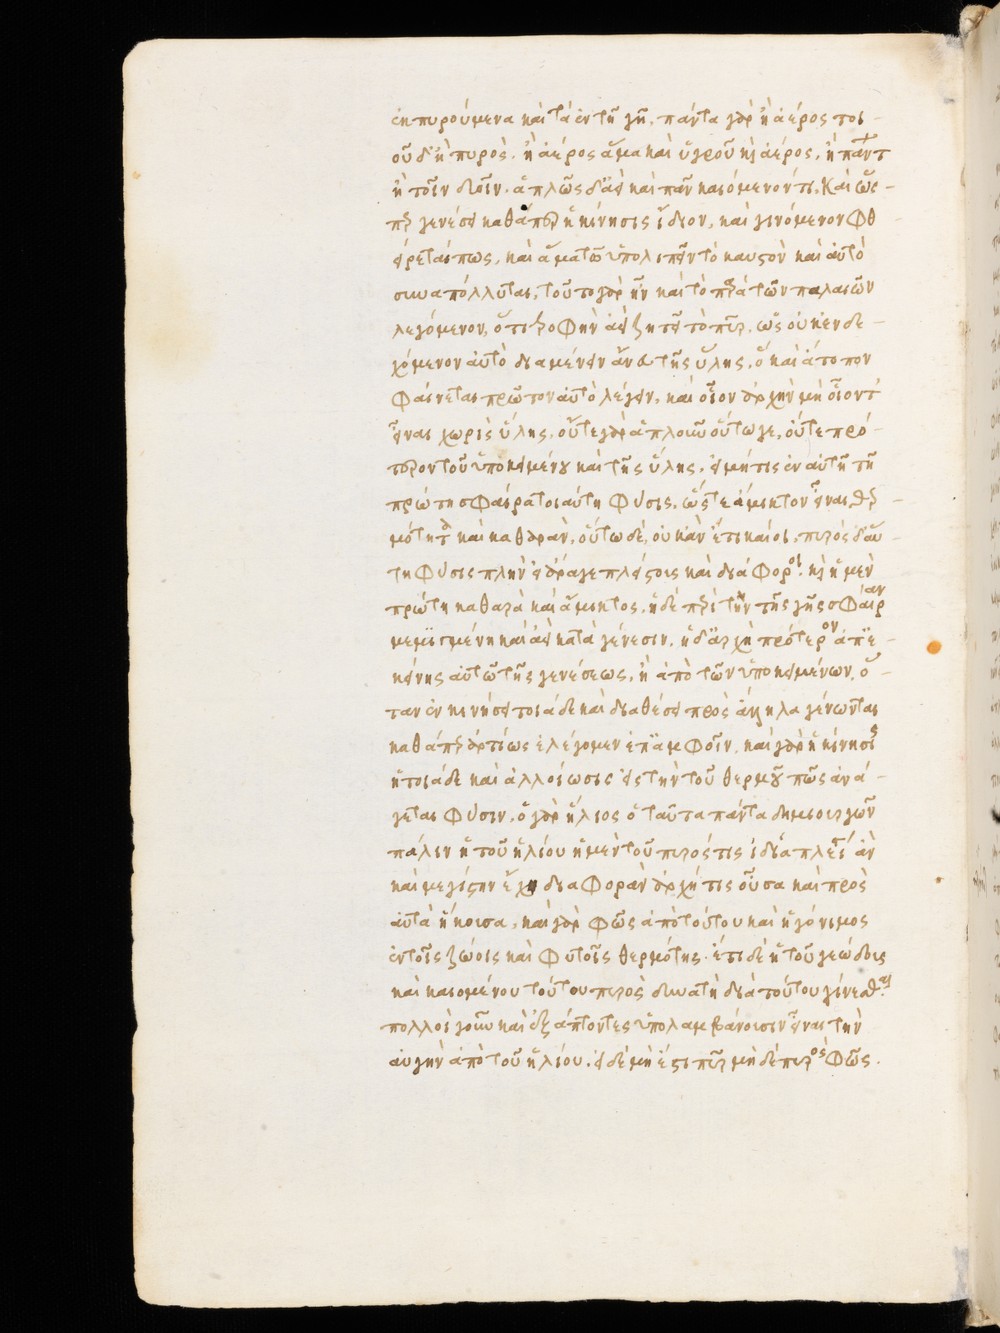 ἐκπυρούμενα καὶ τὰ ἐν τῇ γῇ, πάντα γὰρ ἢ ἀέρος ποι-
οῦ δ' ἢ πυρὸς, ἢ ἀέρος ἅμα καὶ ὑγροῦ κ(αὶ) ἀέρος, ἢ πάντ
ἢ τοῖν δυοῖν. ἁπλῶς δ' ἀεὶ καὶ πᾶν καιόμενόν τι, καὶ ὥς-
περ γενέσει καθάπερ ἡ κίνησις ἴδιον, καὶ γινόμενον φθ
είρεταί πως, καὶ ἅμα τῶ ὑπολιπεῖν τὸ καυστὸν καὶ αὐτὸ
συναπόλλυται, τοῦτο γὰρ ἦν καὶ τὸ παρὰ τῶν παλαιῶν
λεγόμενον, ὅτι τροφὴν ἀεὶ ζητεῖ τὸ πῦρ, ὡς οὐκ ἐνδε-
χόμενον αὐτὸ διαμένειν ἄνευ τῆς ὕλης, ὃ καὶ ἄτοπον
φαίνεται πρῶτον αὐτὸ λέγειν, καὶ οἷον ἀρχὴν μὴ οἷόντ
εἶναι χωρὶς ὕλης, οὔτε γὰρ ἁπλοῦν οὕτω γε, οὔτε πρό-
τερον τοῦ ὑποκειμένου καὶ τῆς ὕλης, εἰ μή τις ἐν αὐτῇ τῇ
πρώτη σφαίρα τοιαύτη φύσις, ὥστε ἄμικτον εἶναι θερ-
μότητα καὶ καθαρὰν, οὕτω δὲ, οὐκ ἂν ἔτι καίοι, πυρὸς δ' αὕ-
τη φύσις πλὴν εἰ ἄρα γε πλείοις καὶ διάφοροι κ(αὶ) ἡ μὲν
πρώτη καθαρὰ καὶ ἄμικτος, ἡ δὲ περὶ τὴν τῆς γῆς σφαῖραν
μεμιϊσμένη καὶ ἀεὶ κατὰ γένεσιν, ἡ δ' ἀρχὴ πρότερον ἀπ' ἐ-
κείνης αὐτῶ τῆς γενέσεως, ἢ ἀπὸ τῶν ὑποκειμένων, ὅ-
ταν ἐν κινήσει τοιάδε καὶ διαθέσει πρὸς ἄλληλα γένωνται
καθάπερ ἀρτίως ἐλέγομεν ἐπ' ἀμφοῖν, καὶ γὰρ ἡ κίνησις
ἡ τοιάδε καὶ ἀλλοίωσις εἰς τὴν τοῦ θερμοῦ πῶς ἀνά-
γεται φύσιν, ὁ γὰρ ἥλιος ὁ ταῦτα πάντα δημιουργῶν
πάλιν ἡ τοῦ ἡλίου ἡ μὲν τοῦ πυρός τις ἰδία πλεῖ ἂν
καὶ μεγίστην ἔχη διαφορὰν ἀρχή τις οὖσα καὶ πρὸς
αὐτὰ ἥκουσα, καὶ γὰρ φῶς ἀπὸ τούτου καὶ ἡ γόνιμος
ἐν τοῖς ζώοις καὶ φυτοῖς θερμότης· ἔτι δὲ ἡ τοῦ γεώδους
καὶ καιομένου τούτου πυρὸς δυνατὴ διὰ τούτου γίνεσθαι,
πολλοὶ γοῦν καὶ ἐξάπτοντες ὑπολαμβάνουσιν εἶναι τὴν
αὐγὴν ἀπὸ τοῦ ἡλίου. εἰ δὲ μὴ ἔστι πῦρ μὴ δὲ πυρὸς φῶς.